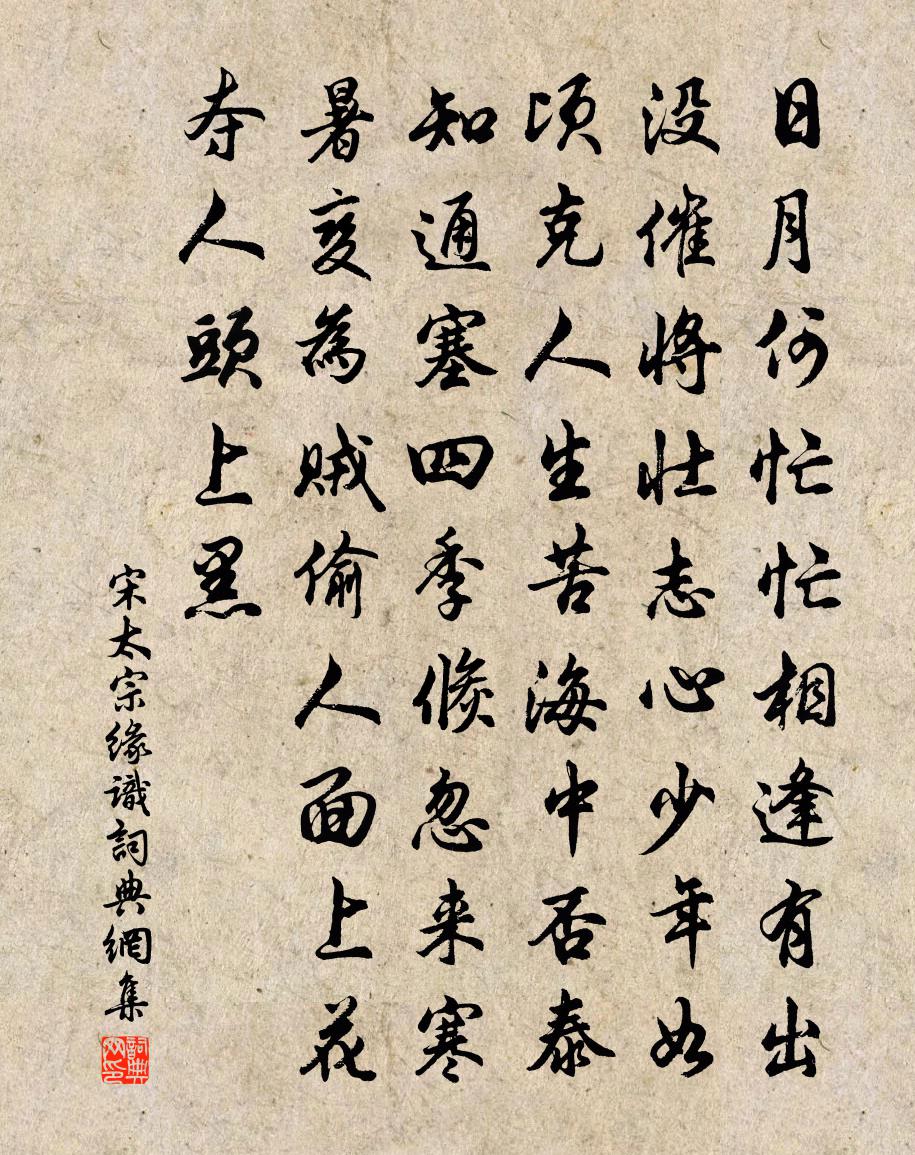 日月何忙忙相逢有出
没催将壮志心少年如
顷克人生苦海中否泰
知通塞四季倏忽来寒
暑变為贼偷人面上花
夺人頭上黑
宋太宗缘識詞典網集
詞典网印